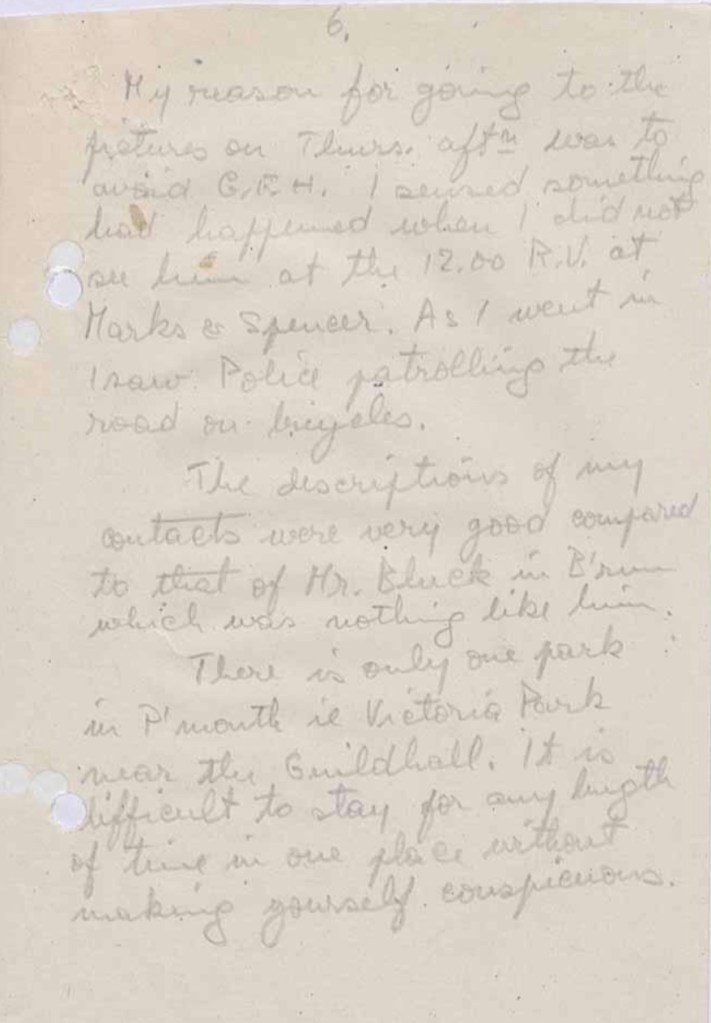 6.
My reason for going to the
pictures on Thurs. aftn was to
avoid G.F.H. I sensed something
had happened when I did not
see him at the 12.00 R.V. at
Marks & Spencer. As I went in
I saw Police patrolling the
road on bicycles.
The descriptions of my
contacts were very good compared
to that of Mr. Bluck in B'rum
which was nothing like him.
There is only one park
in P'mouth ie Victoria Park
near the Guildhall. It is
difficult to stay for any length
of time in one place without
making yourself conspicuous.